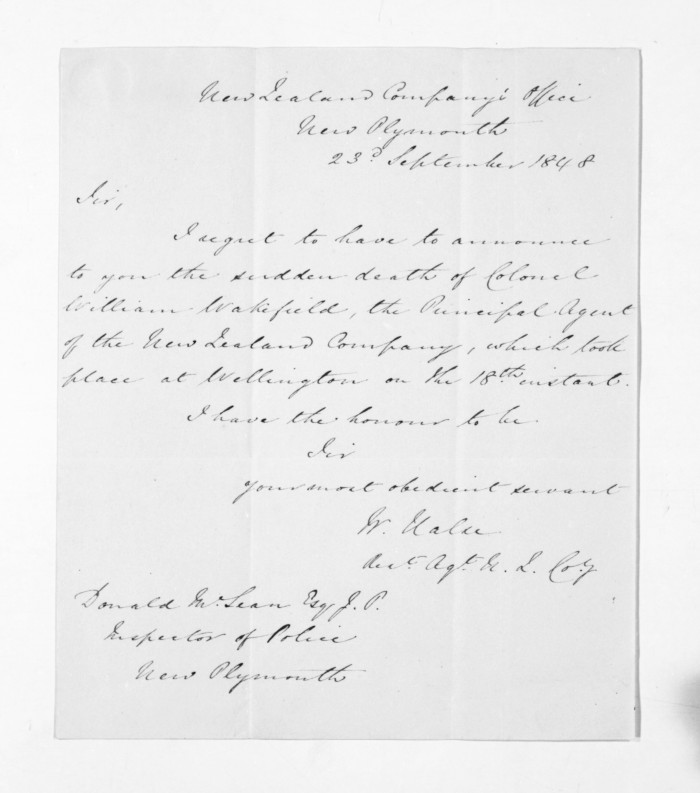 New Zealand Company's Office
New Plymouth
23d. September 1848
Sir,
I regret to have to announce
to you the sudden death of Colonel
William Wakefield, the Principal Agent
of the New Zealand Company, which took
place at Wellington on the 18th instant.
I have the honour to be
Sir
your most obedient servant
W. Halse
Agt. N. Z. Coy
Donald McLean Esq J. P.
Inspector of Police
New Plymouth